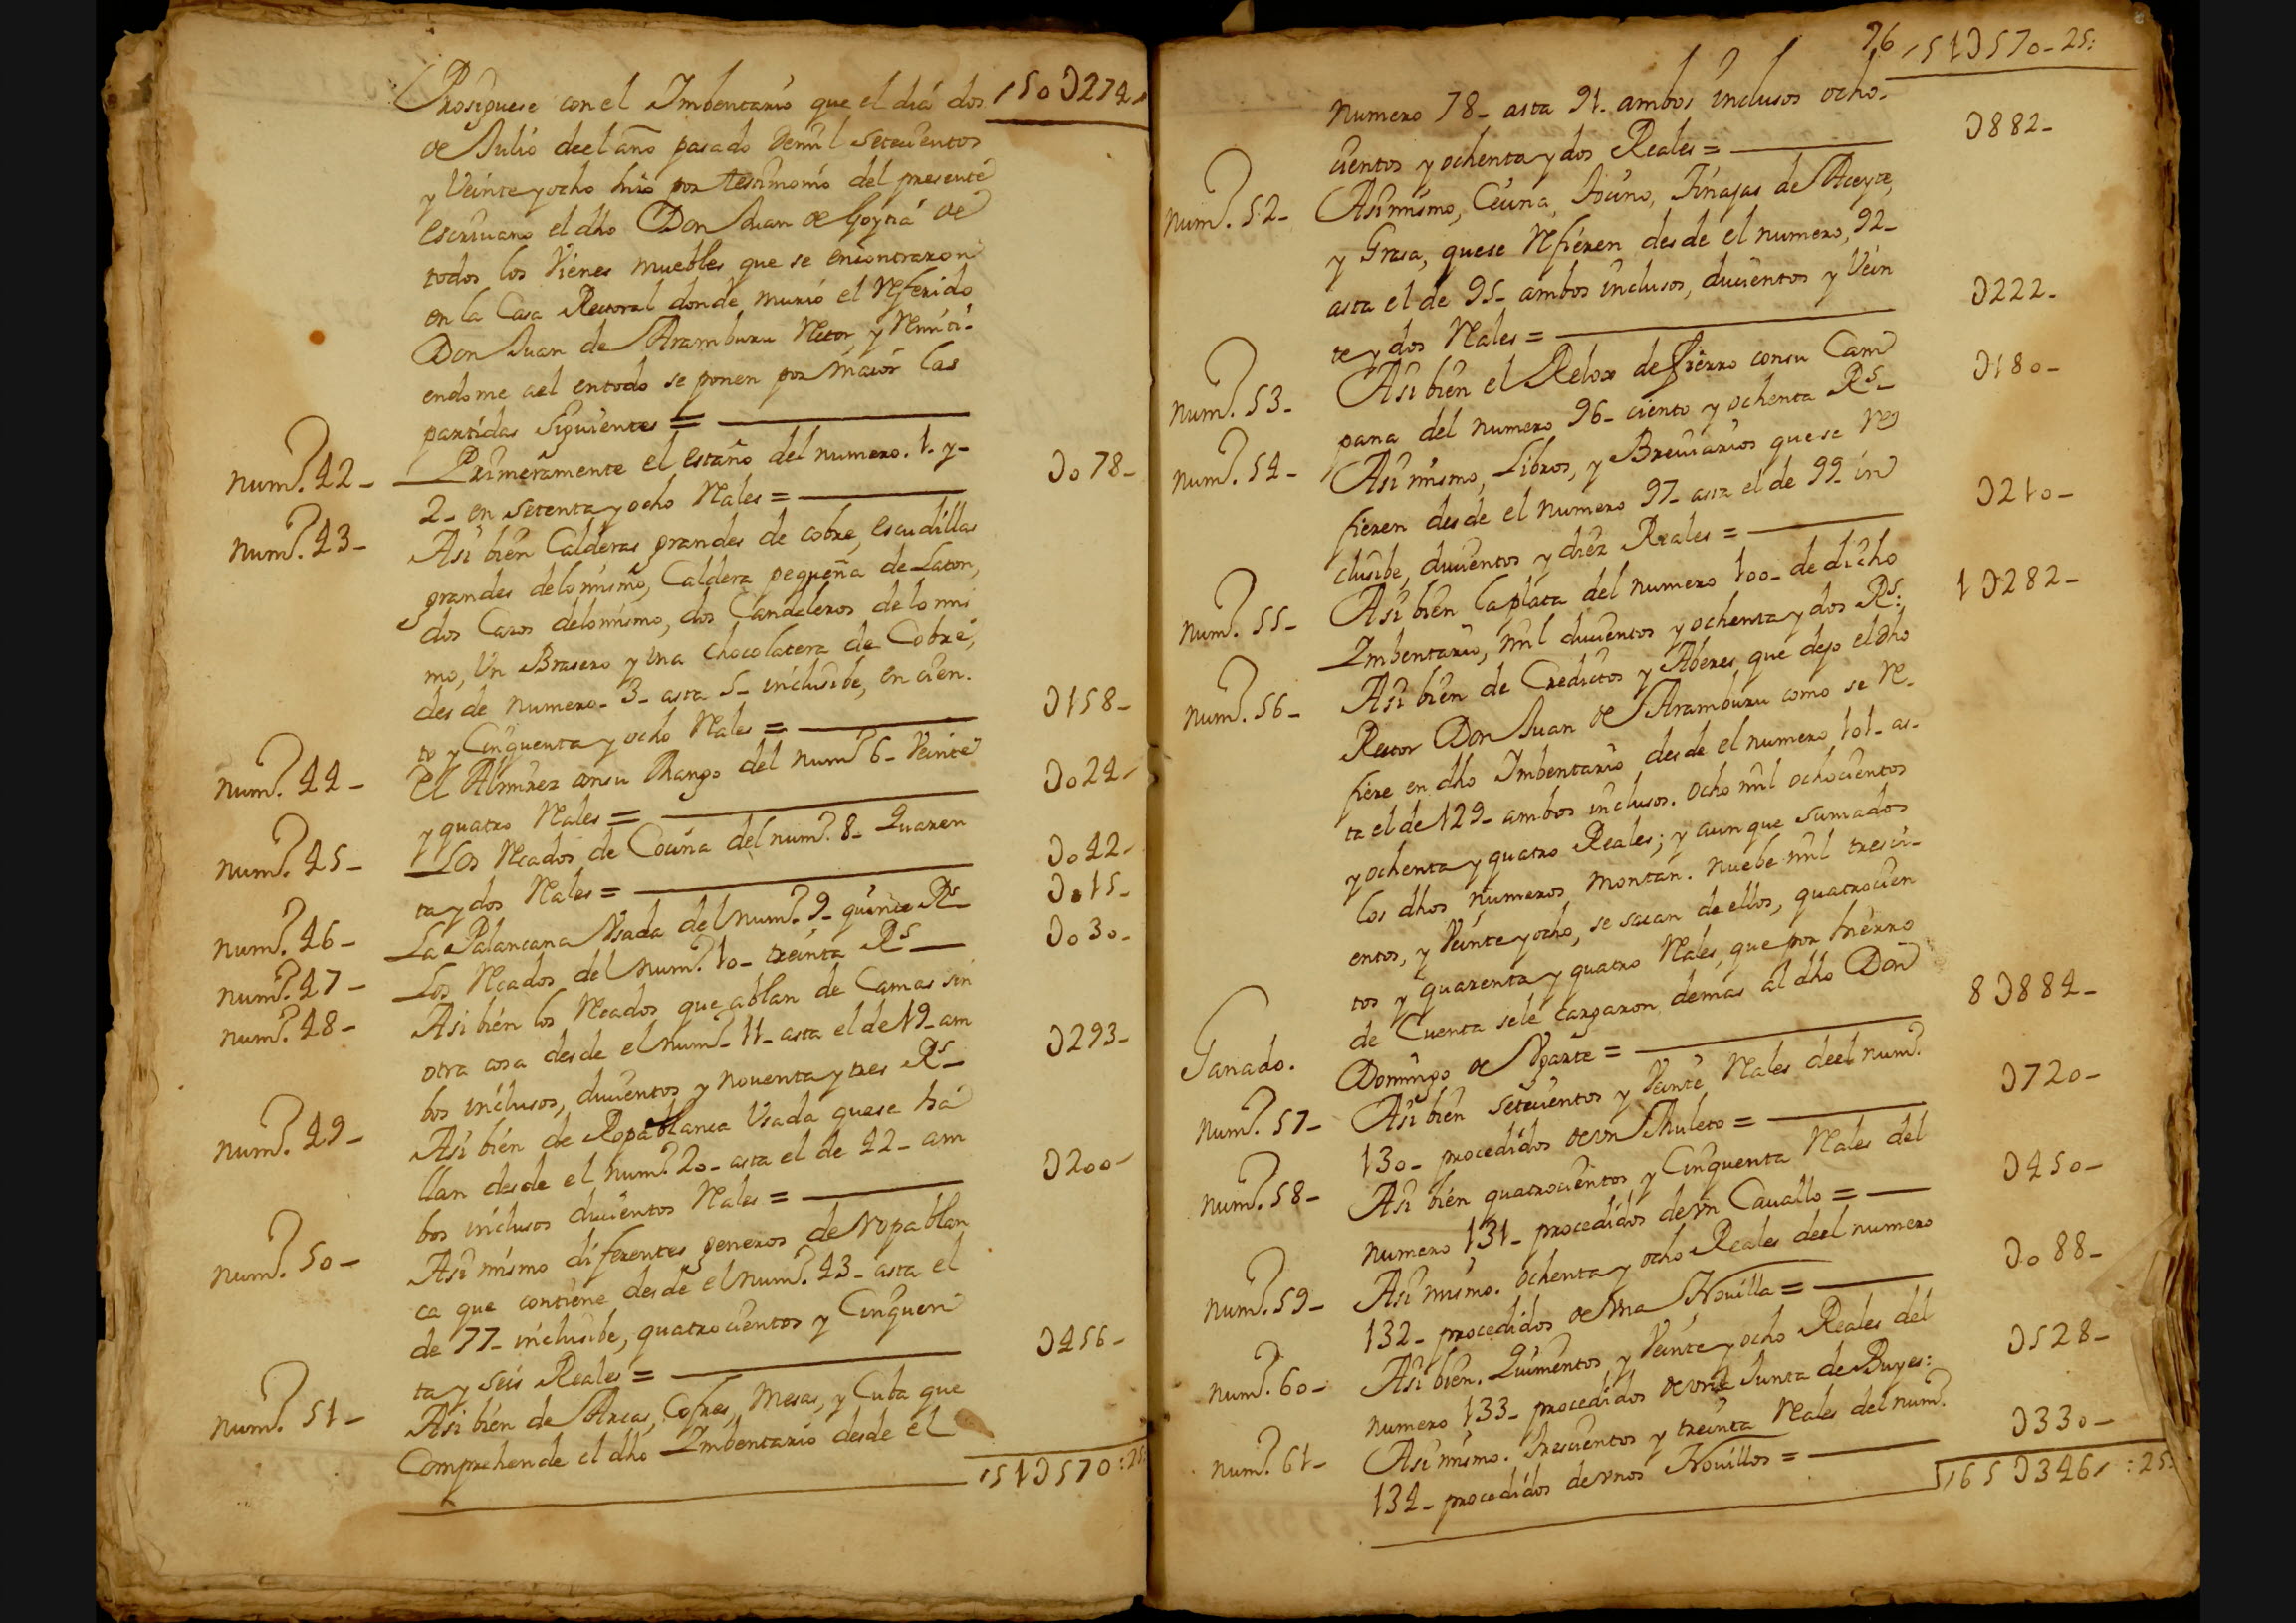 150U274
Prosiguese con el Imbentario que el dia dos
de Julio de el año pasado de mil setecientos
y Veinte y ocho hizo por testimonio del presente
escrivano el dho Don Juan de Goyna de
todos los Vienes muebles que se encontraron
en la Casa Rectoral donde murio el Referido
Don Juan de Aramburu Retor, y Remiti-
endome a el en todo se ponen por maior las
partidas Siguientes =
Num.º 42_ Primeramente el estaño del numero. 1. y_
2_ en setenta y ocho Reales = U078_
Num.º 43_ Asi bien Calderas grandes de cobre, escudillas
grandes de lo mismo, Caldera pequeña de Laton,
dos Cazos de lo mismo, dos Candeleros de lo mis
mo, Un Brasero y una Chocolatera de Cobre,
desde numero_ 3_ asta 5_ inclusibe, en cien_
to y Cinquenta y ocho Reales = U158_
Num.º 44_ El Almirez con su Mango del num.º 6_ Veinte
y quatro Reales = U024_
Num.º 45_ Los Reados de Cocina del num.º 8_ Quaren
ta y dos Reales = U042_
Num.º 46_ La Palancana Usada del num.º 9_ quince Rs_ U015_
Num.º 47_ Los Reados del num.º 10_ treinta Rs_ U030_
Num.º 48_ Asi bien los Reados que ablan de Camas sin
otra cosa desde el num.º 11_ asta el de 19_ am
bos inclusos, ducientos y noventa y tres Rs_ U293_
Num.º 49_ Asi bien de Ropa blanca Usada que se ha
llan desde el num.º 20_ asta el de 42_ am
bos inclusos ducientos Reales = U200_
Num.º 50_ Asi mismo diferentes generos de Ropa blan
ca que contiene desde el num.º 43_ asta el
de 77_ inclusibe, quatrocientos y Cinquen
ta y seis Reales = U456_
Num.º 51_ Asi bien de Arcas, Cofres, Mesas, y Cuba que
Comprehende el dho Imbentario desde el
151U570:25:
76 151U570_25:
Numero 78_ asta 91_ ambos inclusos ocho_
cientos y ochenta y dos Reales = U882_
Num.º 52_ Asi mismo, Cecina, Tocino, Tinajas de Aceyte,
y Grasa, que se Refieren desde el numero, 92_
asta el de 95_ ambos inclusos, ducientos y Vein
te y dos Reales = U222_
Num.º 53_ Asi bien el Relox de fierro con su Cam
pana del numero 96_ ciento y ochenta Rs_ U180_
Num.º 54_ Asi mismo, Libros, y Breviarios que se Re
fieren desde el numero 97_ asta el de 99_ in
clusibe, ducientos y diez Reales = U210_
Num.º 55_ Asi bien la plata del numero 100_ de dicho
Imbentario, mil ducientos y ochenta y dos Rs: 1U282_
Num.º 56_ Asi bien de Creditos y Aberes que dejo el dho
Rector Don Juan de Aramburu como se Re_
fiere en dho Imbentario desde el numero 101_ as_
ta el de 129_ ambos inclusos. Ocho mil ochocientos
y ochenta y quatro Reales; y aunque sumados
los dhos numeros montan. Nuebe mil tresci_
entos, y Veinte y ocho, se sacan de ellos, quatrocien
tos y quarenta y quatro Reales, que por hierro
de Cuenta se le cargaron demas al dho Don
Domingo de Ugarte = 8U884_
Ganado.
Num.º 57_ Asi bien setecientos y Veinte Reales de el num.º
130_ procedidos de un Muleto = U720_
Num.º 58_ Asi bien quatrocientos y Cinquenta Reales del
numero 131_ procedidos de un Cauallo = U450_
Num.º 59_ Asi mismo. Ochenta y ocho Reales de el numero
132_ procedidos de una Nouilla = U088_
Num.º 60_ Asi bien. Quinientos y Veinte y ocho Reales del
numero 133_ procedidos de una Junta de Buyes: U528_
Num.º 61_ Asi mismo. Trescientos y treinta Reales del num.º
134_ procedidos de unos Nouillos = U330_
165U346:25: